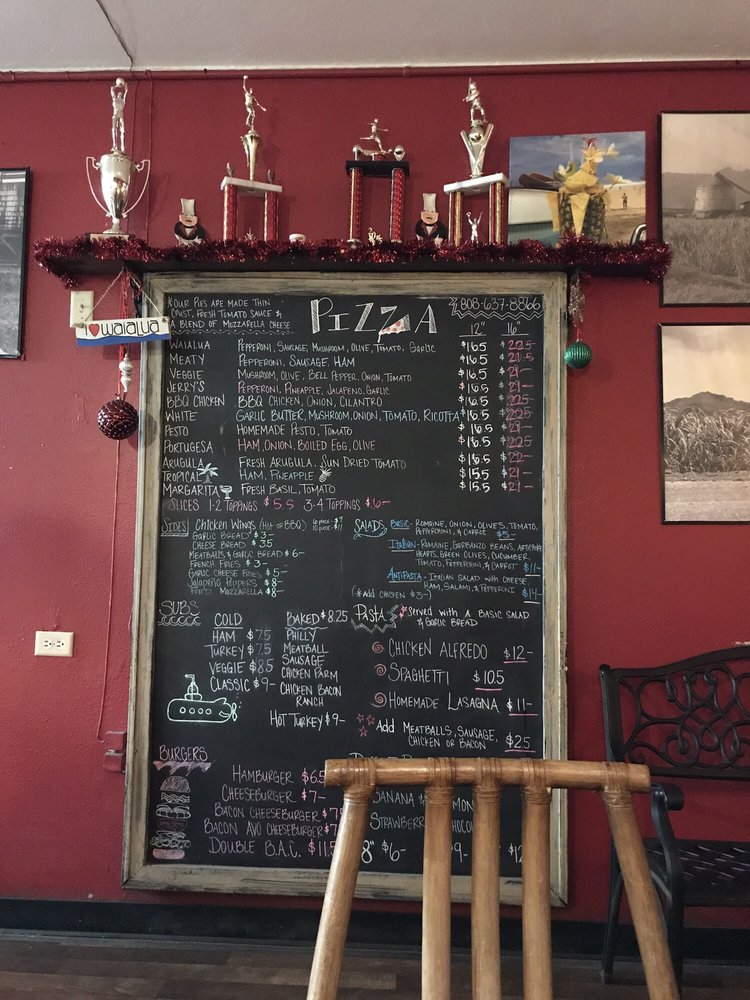 I ♥ WAIALUA
*OUR PIES ARE MADE THIN
CRUST, FRESH TOMATO SAUCE &
A BLEND OF MOZZARELLA CHEESE
PIZZA
808-637-8866
12" 16"
WAIALUA PEPPERONI, SAUSAGE, MUSHROOM, OLIVE, TOMATO, GARLIC $16.5 $22.5
MEATY PEPPERONI, SAUSAGE, HAM $16.5 $21.5
VEGGIE MUSHROOM, OLIVE, BELL PEPPER, ONION, TOMATO $16.5 $21-
JERRY'S PEPPERONI, PINEAPPLE, JALAPENO, GARLIC $16.5 $21-
BBQ CHICKEN BBQ CHICKEN, ONION, CILANTRO $16.5 $22.5
WHITE GARLIC BUTTER, MUSHROOM, ONION, TOMATO, RICOTTA $16.5 $22.5
PESTO HOMEMADE PESTO, TOMATO $16.5 $21-
PORTUGESA HAM, ONION, BOILED EGG, OLIVE $16.5 $22.5
ARUGULA FRESH ARUGULA, SUN DRIED TOMATO $16.5 $22-
TROPICAL HAM, PINEAPPLE $15.5 $21-
MARGARITA FRESH BASIL, TOMATO $15.5 $21-
SLICES 1-2 TOPPINGS $5.5 3-4 TOPPINGS $6-
SIDES CHICKEN WINGS (HOT OR BBQ)
GARLIC BREAD $3-
CHEESE BREAD $3.5
MEATBALLS & GARLIC BREAD $6-
FRENCH FRIES $3-
GARLIC CHEESE FRIES $5-
JALAPEÑO POPPERS $8-
FRIED MOZZARELLA $8-
SALADS BASIC- ROMAINE, ONION, OLIVES, TOMATO,
PEPPERONCINI, & CARROT $5-
ITALIAN- ROMAINE, GARBANZO BEANS, ARTICHOKE
HEARTS, GREEN OLIVES, CUCUMBER,
TOMATO, PEPPERONCINI, & CARROT $11-
ANTIPASTA- ITALIAN SALAD WITH CHEESE,
HAM, SALAMI, & PEPPERONI $14-
(*ADD CHICKEN $3-)
SUBS
COLD
HAM $7.5
TURKEY $7.5
VEGGIE $8.5
CLASSIC $9-
BAKED $8.25
PHILLY
MEATBALL
SAUSAGE
CHICKEN PARM
CHICKEN BACON
RANCH
HOT TURKEY $9-
PASTA *SERVED WITH A BASIC SALAD
& GARLIC BREAD
CHICKEN ALFREDO $12-
SPAGHETTI $10.5
HOMEMADE LASAGNA $11-
ADD MEATBALLS, SAUSAGE,
CHICKEN OR BACON $2.5
BURGERS
HAMBURGER $6.5
CHEESEBURGER $7-
BACON CHEESEBURGER
BACON AVO CHEESEBURGER
DOUBLE B.A.C. $11.5
BANANA &
8" $6-